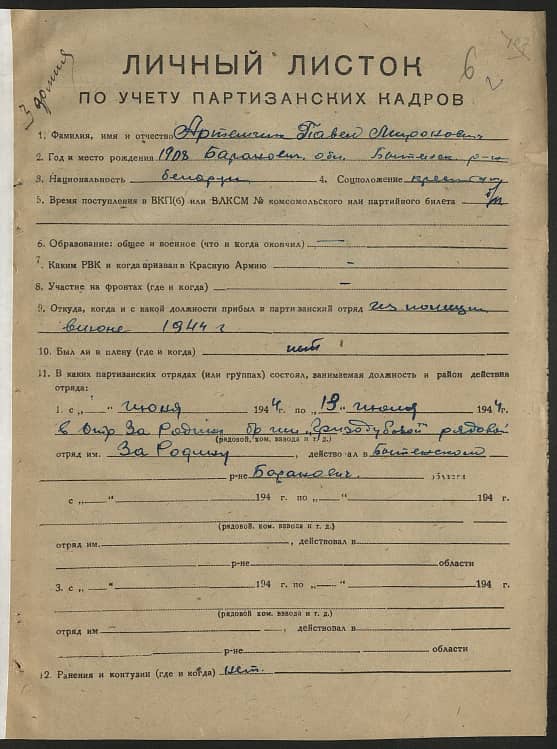 6
2
ЛИЧНЫЙ ЛИСТОК
ПО УЧЕТУ ПАРТИЗАНСКИХ КАДРОВ
1. Фамилия, имя и отчество Артемчик Павел Миронович
2. Год и место рождения 1908 Баранович. обл. Бытенск. р-н
3. Национальность беларус 4. Соцположение
5. Время поступления в ВКП(б) или ВЛКСМ № комсомольского или партийного билета б/п
6. Образование: общее и военное (что и когда окончил) —
7. Каким РВК и когда призван в Красную Армию —
8. Участие на фронтах (где и когда) —
9. Откуда, когда и с какой должности прибыл в партизанский отряд из полиции
в июне 1944 г
10. Был ли в плену (где и когда) нет
11. В каких партизанских отрядах (или группах) состоял, занимаемая должность и район действия
отряда:
1. с „ “ июня 1944г. по „19“ июля 1944г.
в отр. За Родину бр. им. Гризодубовой рядовой
(рядовой, ком. взвода и т. д.)
отряд им. За Родину, действовал в Бытенском
р-не Баранович. области
с „—“ 194 г. по „—“ 194 г.
(рядовой, ком. взвода и т. д.)
отряд им. , действовал в
р-не области
3. с „—“ 194 г. по „—“ 194 г.
(рядовой, ком. взвода и т. д.)
отряд им , действовал в
р-не области
12. Ранения и контузии (где и когда) нет.